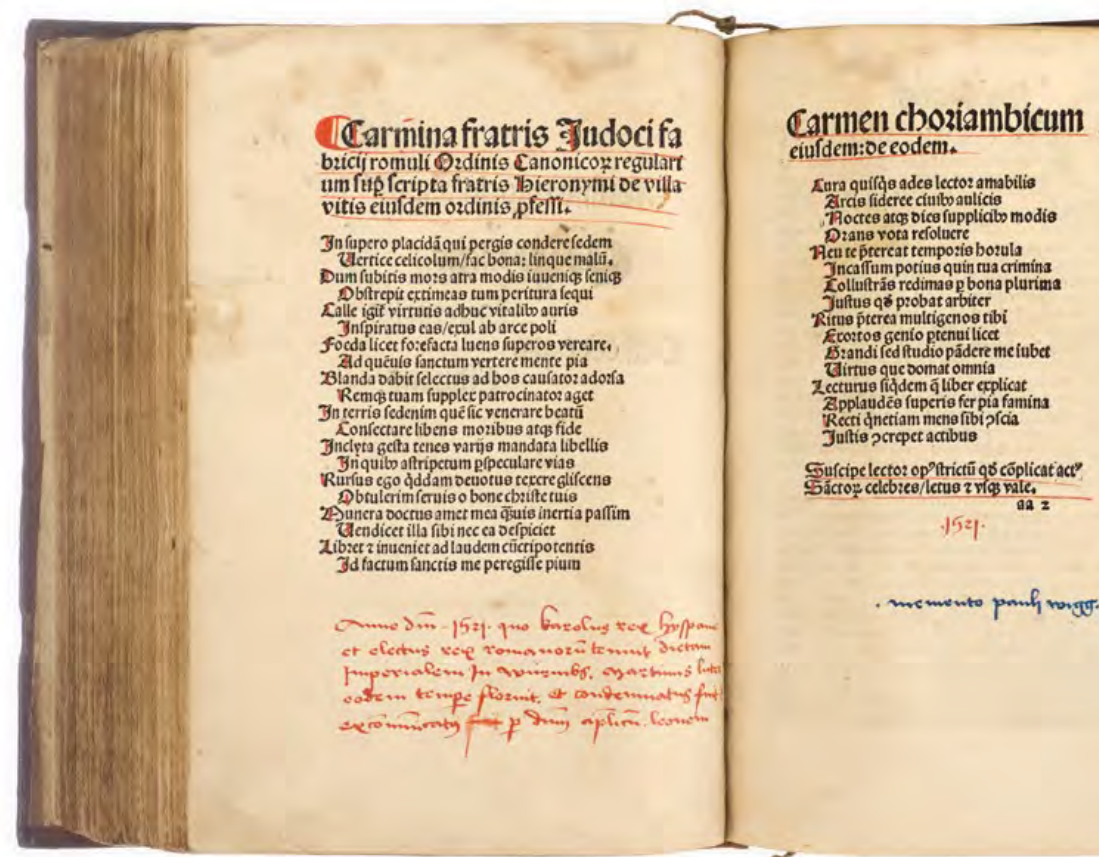 Carmīna fratris Judoci fa
bricij romuli Ordinis Canonicoꝝ regulari
um sup̲ scripta fratris Hieronymi de villa
vitis eiusdem ordinis ꝓfessi.
In supero placidā qui pergis condere sedem
Uertice celicolum/fac bona: linque malū.
Dum subitis mors atra modis iuueniqꝫ seniqꝫ
Obstrepit extimeas tum peritura sequi
Calle igit᷑ virtutis adhuc vitalibꝰ auris
Inspiratus eas/exul ab arce poli
Foeda licet forefacta luens superos vereare.
Ad quēuis sanctum vertere mente pia
Blanda dabit selectus ad hos causator adorsa
Remqꝫ tuam supplex patrocinator aget
In terris sedenim quē sic venerare beatū
Consectare libens moribus atqꝫ fide
Inclyta gesta tenes varijs mandata libellis
In quibꝰ astripetum ꝑspeculare vias
Rursus ego q̇ddam deuotus texere gliscens
Obtulerim seruis o bone christe tuis
Munera doctus amet mea q̄uis inertia passim
Uendicet illa sibi nec ea despiciet
Libret ⁊ inueniet ad laudem cūctipotentis
Id factum sanctis me peregisse pium
Anno dn̄i 1521 quo karolus rex hyspanie
et electus rex romanorū tenuit dietam
Imperialem In wurmbs. Martinus lute
eodem tempe floruit, et condemnatus fuit
excōmūicatꝰ p dnm aplicū. leonem
Carmen choriambicum
eiusdem: de eodem.
Cura quisq̇s ades lector amabilis
Arcis sideree ciuibꝰ aulicis
Noctes atqꝫ dies supplicibꝰ modis
Orans vota resoluere
Neu te p̄tereat temporis horula
Incassum potius quin tua crimina
Collustrās redimas ꝑ bona plurima
Justus qđ probat arbiter
Ritus p̄terea multigenos tibi
Exortos genio ꝑtenui licet
Grandi sed studio pādere me iubet
Uirtus que domat omnia
Lecturus siq̇dem q̄ liber explicat
Applaudēs superis fer pia famina
Recti q̇netiam mens sibi ꝯscia
Justis ꝯcrepet actibus
Suscipe lector opꝰ strictū qđ cōplicat actꝰ
Sāctoꝝ celebres/letus ⁊ vsqꝫ vale.
aa 2
.1521.
. memento pauli wigg.